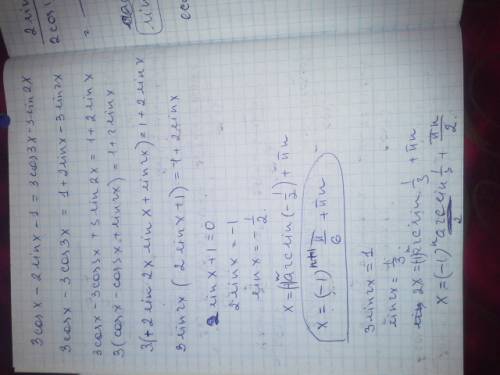 2 sin
2 cos
=
sin
3 cos x - 2 sin x - 1 = 3 cos 3x - 3 sin 2x
3 cos x - 3 cos 3x = 1 + 2 sin x - 3 sin 2x
3 cos x - 3 cos 3x + 3 sin 2x = 1 + 2 sin x
3 (cos x - cos 3x + sin 2x) = 1 + 2 sin x
3 (+2 sin 2x sin x + sin 2x) = 1 + 2 sin x
3 sin 2x (2 sin x + 1) = 1 + 2 sin x
2 sin x + 1 = 0
2 sin x = -1
sin x = -1/2
x = (-1)ⁿ arcsin (-1/2) + πn
x = (-1)ⁿ⁺¹ π/6 + πn
3 sin 2x = 1
sin 2x = 1/3
2x = (-1)ⁿ arcsin 1/3 + πn
x = (-1)ⁿ (arcsin 1/3)/2 + πn/2